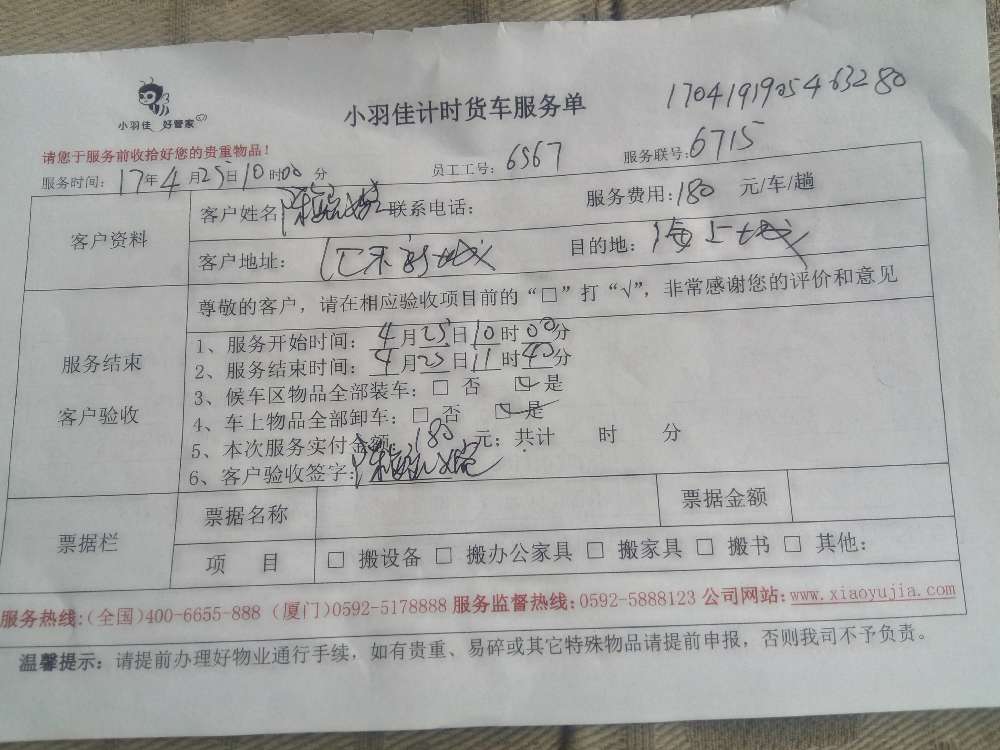 小羽佳 好管家
小羽佳计时货车服务单
1704191905463280
请您于服务前收拾好您的贵重物品！
员工工号：6567 服务联号：6715
服务时间：17年4月25日10时00分
客户资料
客户姓名 陈 联系电话： 服务费用：180 元/车/趟
客户地址： 目的地：海上城
尊敬的客户，请在相应验收项目前的“□”打“√”，非常感谢您的评价和意见
服务结束
客户验收
1、服务开始时间：4月25日10时00分
2、服务结束时间：4月25日11时40分
3、候车区物品全部装车：□ 否 ☑ 是
4、车上物品全部卸车：□ 否 ☑ 是
5、本次服务实付金额：180元；共计 时 分
6、客户验收签字：陈
票据栏
票据名称 票据金额
项 目 □ 搬设备 □ 搬办公家具 □ 搬家具 □ 搬书 □ 其他：
服务热线：(全国)400-6655-888 (厦门)0592-5178888 服务监督热线：0592-5888123 公司网站：www.xiaoyujia.com
温馨提示：请提前办理好物业通行手续，如有贵重、易碎或其它特殊物品请提前申报，否则我司不予负责。